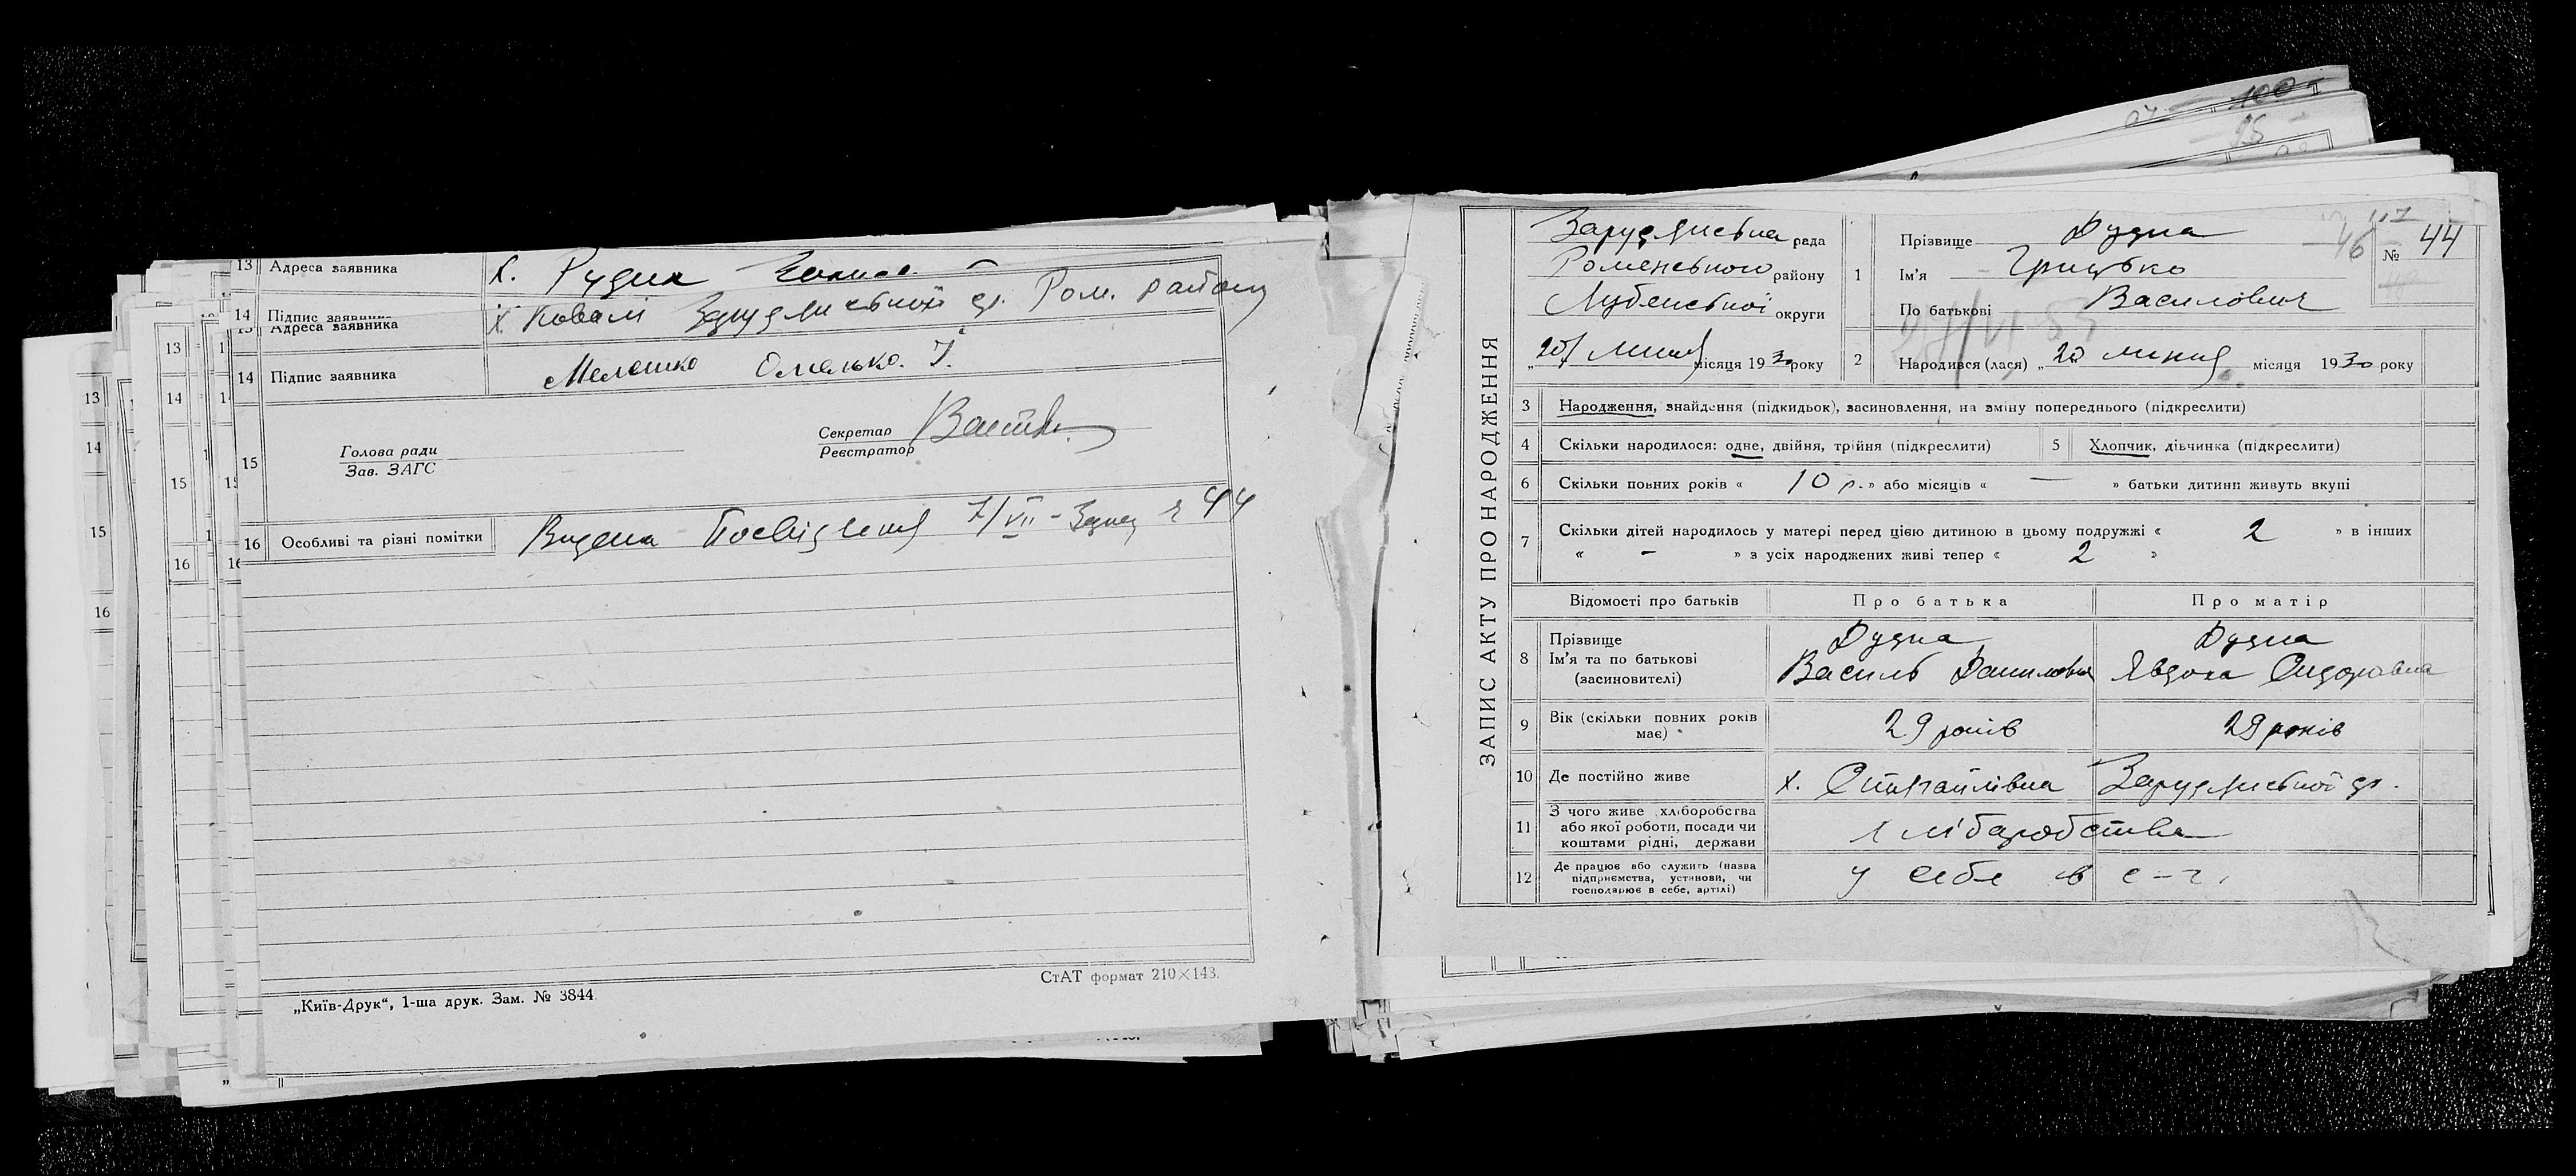 13 Адреса заявника х. Рудка
14 Підпис заявника
Адреса заявника х. Ковалі Заруднянської с.р. Ром. району
14 Підпис заявника Мелешко Омелько. І.
15 Голова ради
Зав. ЗАГС
Секретар
Реєстратор
16 Особливі та різні помітки Видена Посвідчення 7/VII - 44
СтАТ формат 210×143.
„Київ-Друк“, 1-ша друк. Зам. № 3844
13
14
15
16
13
14
15
16
100
95
ЗАПИС АКТУ ПРО НАРОДЖЕННЯ
рада
Роменського району
Лубенської округи
„20“ липня місяця 1930 року
1 Прізвище Дудка
Ім’я Грицько
По батькові Василович
117
46
№ 44
2 Народився (лася) „20 липня місяця 1930 року
3 Народження, знайдення (підкидьок), засиновлення, на зміну попереднього (підкреслити)
4 Скільки народилося: одне, двійня, трійня (підкреслити) 5 Хлопчик, дівчинка (підкреслити)
6 Скільки повних років « 10 р. » або місяців « — » батьки дитини живуть вкупі
7 Скільки дітей народилось у матері перед цією дитиною в цьому подружжі « 2 » в інших
« - » з усіх народжених живі тепер « 2 »
Відомості про батьків Про батька Про матір
8 Прізвище Дудка Дудка
Ім’я та по батькові Василь Данилович Явдоха Сидоровна
(засновителі)
9 Вік (скільки повних років має) 29 років 29 років
10 Де постійно живе х.
11 З чого живе хліборобства
або якої роботи, посади чи
коштами рідні, держави
хліборобства
12 Де працює або служить (назва
підприємства, установи, чи
господарює в себе, артілі)
у себе в с-г.